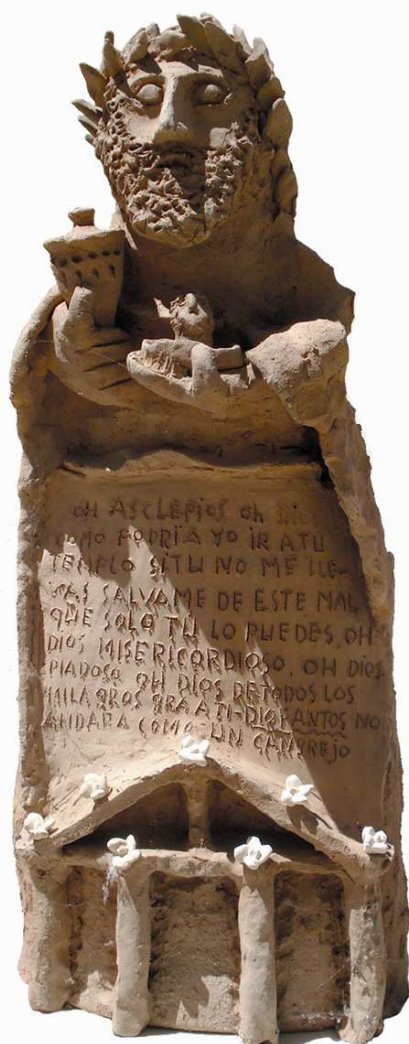 OH ASCLEPIOS OH DIOS
COMO PODRÍA YO IR A TU
TEMPLO SI TU NO ME LLE-
VAS SALVAME DE ESTE MAL
QUE SOLO TU LO PUEDES, OH
DIOS MISERICORDIOSO. OH DIOS
PIADOSO OH DIOS DE TODOS LOS
MILAGROS GRA A TI-DIOFANTOS NO
ANDARA COMO UN CANGREJO